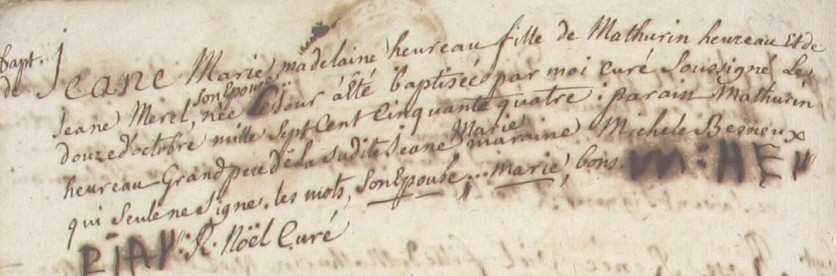 bapt. Jeane Marie madelaine heureau fille de Mathurin heureau et de
de Jeane Merel, son Epouse née ce jour a été baptisée par moi curé soussigné le
douze d'octobre mille sept Cent Cinquante quatre parain Mathurin
heureau Grand pere de la sudite Jeane Marie maraine Michele Besneux
qui seule ne signe. les mots, son Epouse,.. marie, bons. M:HEV
RIAV. R. Noël Curé